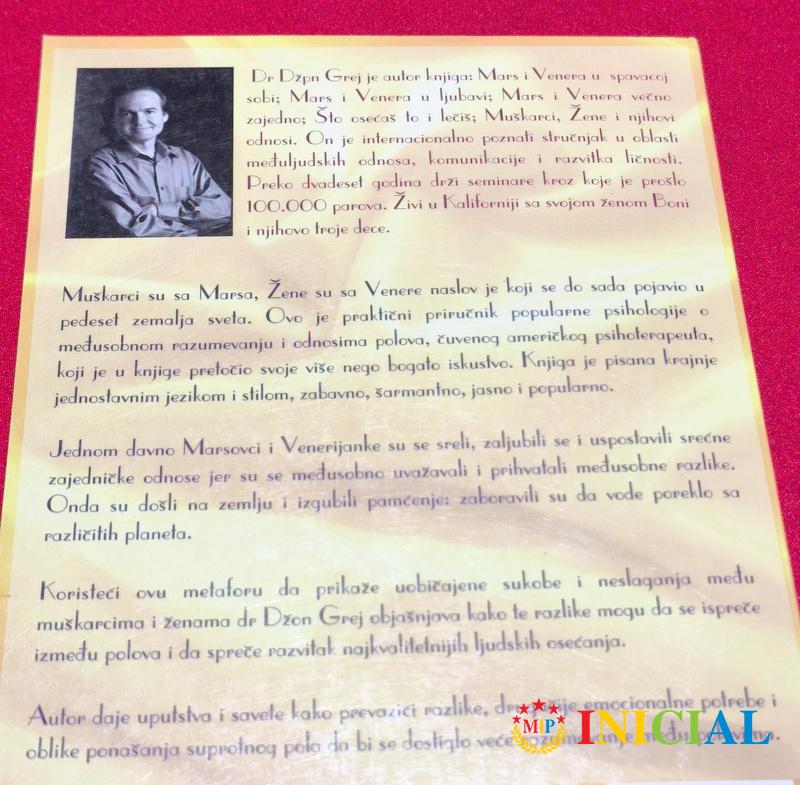 Dr Džpn Grej je autor knjiga: Mars i Venera u spavacoj
sobi; Mars i Venera u ljubavi; Mars i Venera večno
zajedno; Što osećaš to i lečiš; Muškarci, Žene i njihovi
odnosi. On je internacionalno poznati stručnjak u oblasti
međuljudskih odnosa, komunikacije i razvitka ličnosti.
Preko dvadeset godina drži seminare kroz koje je prošlo
100.000 parova. Živi u Kaliforniji sa svojom ženom Boni
i njihovo troje dece.
Muškarci su sa Marsa, Žene su sa Venere naslov je koji se do sada pojavio u
pedeset zemalja sveta. Ovo je praktični priručnik popularne psihologije o
međusobnom razumevanju i odnosima polova, čuvenog američkog psihoterapeuta,
koji je u knjige pretočio svoje više nego bogato iskustvo. Knjiga je pisana krajnje
jednostavnim jezikom i stilom, zabavno, šarmantno, jasno i popularno.
Jednom davno Marsovci i Venerijanke su se sreli, zaljubili se i uspostavili srećne
zajedničke odnose jer su se međusobno uvažavali i prihvatali međusobne razlike.
Onda su došli na zemlju i izgubili pamćenje: zaboravili su da vode poreklo sa
različitih planeta.
Koristeći ovu metaforu da prikaže uobičajene sukobe i neslaganja među
muškarcima i ženama dr Džon Grej objašnjava kako te razlike mogu da se ispreče
između polova i da spreče razvitak najkvalitetnijih ljudskih osećanja.
Autor daje uputstva i savete kako prevazići razlike, emocionalne potrebe i
oblike ponašanja suprotnog pola da bi se dostiglo veće razumevanje među
MIP INICIAL